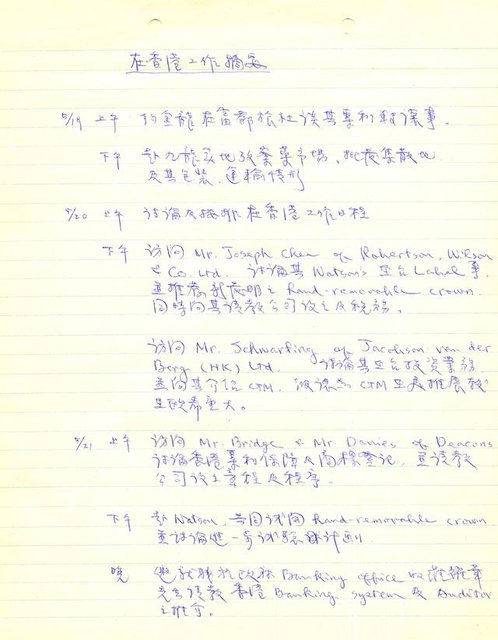 在香港工作摘要
5/19 上午 約金龍在富都旅社談其專利 事.
下午 赴九龍實地 菜市場, 批發集散地
及其包裝, 運輸情形
5/20 上午 討論及安排在香港工作日程
下午 訪問 Mr. Joseph Chen of Robertson, Wilson
& Co. Ltd. 討論其 Watson's 至台 Label 事,
並推薦 發明之 hand-removable crown.
同時向其請教公司設立及稅務.
訪問 Mr. Schwarfing of Jacobson van der
Berg (HK) Ltd. 討論其至台投資業務
並向其介紹 CTM, CTM 至 推展
至歐希望大.
5/21 上午 訪問 Mr. Bridge & Mr. Davies of Deacons
討論香港專利保障及商標登記, 並請教
公司設立章程及程序.
下午 赴 Watson, 共同試開 hand-removable crown
並討論進一步試驗計劃.
晚 Banking office
請教香港 Banking system 及 Auditor
之推介.